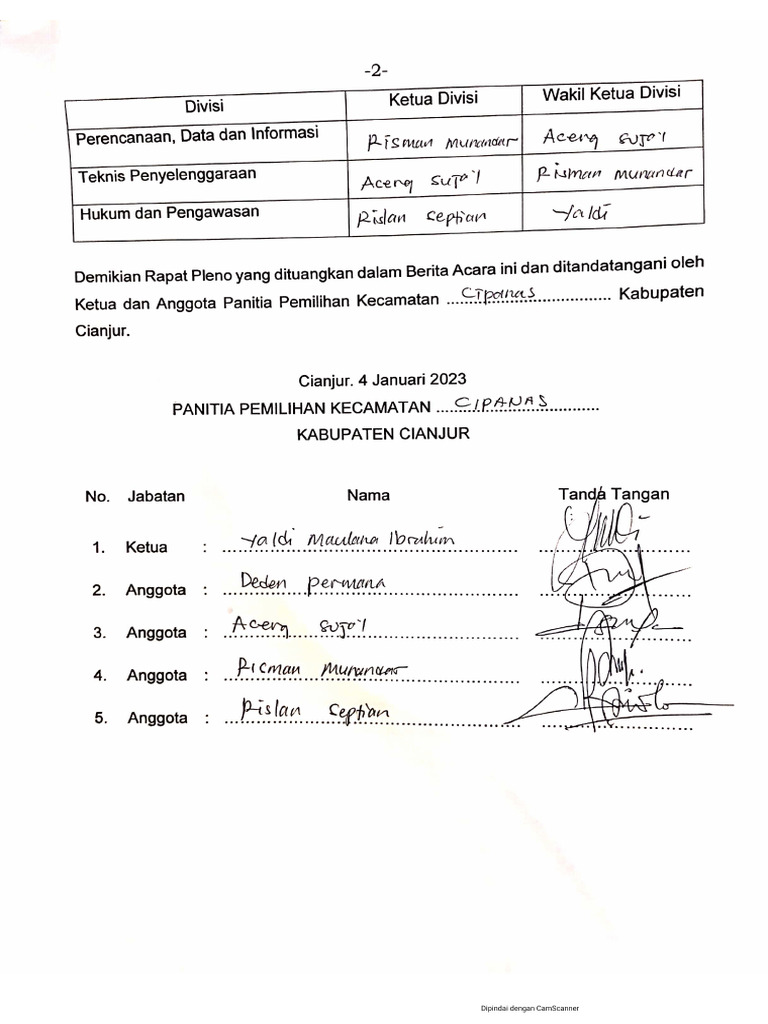 -2-
Divisi Ketua Divisi Wakil Ketua Divisi
Perencanaan, Data dan Informasi Risman Munandar Aceng Suja'i
Teknis Penyelenggaraan Aceng Suja'i Risman Munandar
Hukum dan Pengawasan Rislan Septian Yaldi
Demikian Rapat Pleno yang dituangkan dalam Berita Acara ini dan ditandatangani oleh
Ketua dan Anggota Panitia Pemilihan Kecamatan Cipanas Kabupaten
Cianjur.
Cianjur. 4 Januari 2023
PANITIA PEMILIHAN KECAMATAN CIPANAS
KABUPATEN CIANJUR
No. Jabatan Nama Tanda Tangan
1. Ketua : Yaldi Maulana Ibrahim
2. Anggota : Deden Permana
3. Anggota : Aceng Suja'i
4. Anggota : Risman Munandar
5. Anggota : Rislan Septian
Dipindai dengan CamScanner